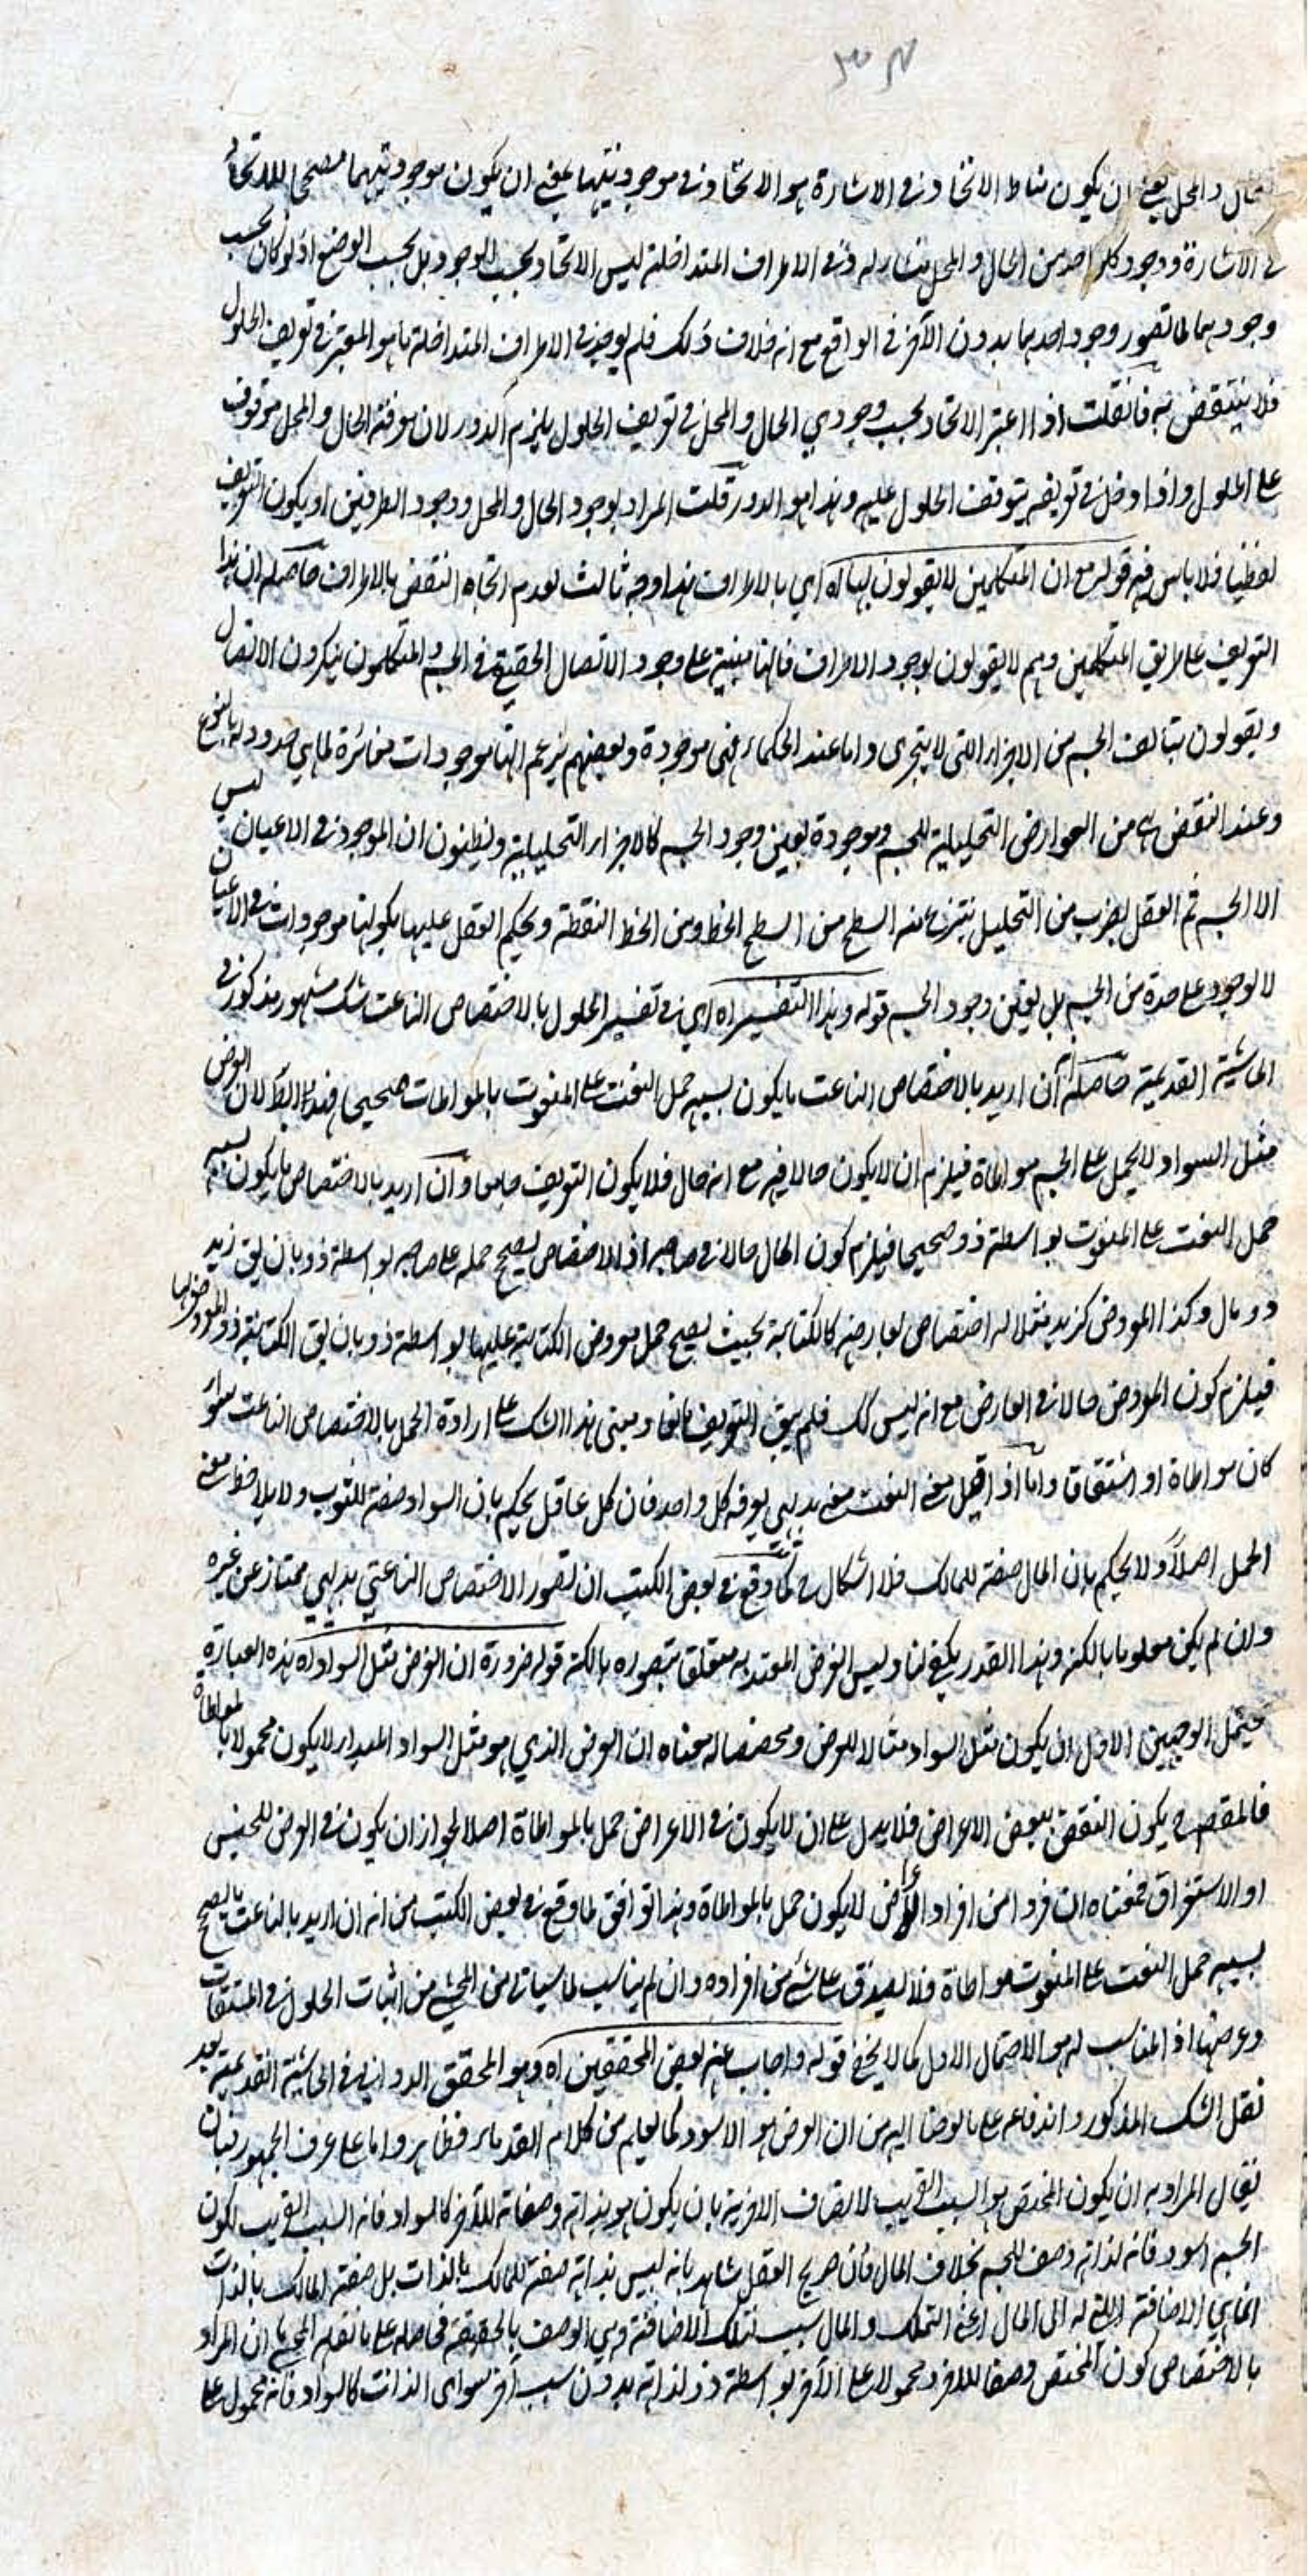 ٣٠٣
الحال والمحل يعني ان يكون مناط الاتحاد في الاشارة هو الاتحاد في موجوديتهما بمعنى ان يكون موجوديتهما مصححا للاتحاد
في الاشارة ووجود كل واحد من الحال والمحل مشار له وفي الاطراف المتداخلة ليس الاتحاد بحسب الوجود بل بحسب الوضع اذ لو كان بحسب
وجودهما لما تصور وجود احدهما بدون الآخر في الواقع مع انه خلاف ذلك فلم يوجد في الاطراف المتداخلة ما هو المعتبر في تعريف الحلول
فلا ينتقض به فان قلت اذا اعتبر الاتحاد بحسب وجودي الحال والمحل في تعريف الحلول يلزم الدور لان معرفة الحال والمحل موقوف
على الحلول واذا اوخذ في تعريفه يتوقف الحلول عليه وهذا هو الدور قلت المراد بوجود الحال والمحل ووجود الطرفين او يكون التعريف
لفظيا فلا باس فيه قوله مع ان المتكلمين لا يقولون بها اه اي بالاطراف هذا وجه ثالث لعدم اتجاه النقض بالاطراف حاصله ان هذا
التعريف على طريق المتكلمين وهم لا يقولون بوجود الاطراف فانها مبنية على وجود الاتصال الحقيقي في الجسم والمتكلمون ينكرون الاتصال
ويقولون بتالف الجسم من الاجزاء التي لا يتجزى واما عند الحكماء فهي موجودة وبعضهم يزعم انها موجودات مغائرة لما هي حدود له بالنوع
وعند البعض هي من العوارض التحليلية للجسم وموجودة بعين وجود الجسم كالاجزاء التحليلية ويظنون ان الموجود في الاعيان ليس
الا الجسم ثم العقل بضرب من التحليل ينتزع عنه السطح من السطح الخط ومن الخط النقطة ويحكم العقل عليها بكونها موجودات في الاعيان
لا بوجود على حدة من الجسم بل بعين وجود الجسم قوله وهذا التفسير اه اي في تفسير الحلول بالاختصاص الناعت شك مشهور مذكور في
الحاشية القديمة حاصله انه ان اريد بالاختصاص الناعت ما يكون بسببه حمل النعت على المنعوت بالمواطات صحيحا فهذا باطل لان العرض
مثل السواد لا يحمل على الجسم مواطاة فيلزم ان لا يكون حالا فيه مع انه حال فلا يكون التعريف جامعا وان اريد بالاختصاص ما يكون بسببه
حمل النعت على المنعوت بواسطة ذو صحيحا فيلزم كون المال حالا في صاحبه اذ الاختصاص يصحح حمله على صاحبه بواسطة ذو بان يق زيد
ذو مال وكذا المعروض كزيد مثلا له اختصاص بعارضه كالكتابة بحيث يصح حمل معروض الكتابة عليها بواسطة ذو بان يق الكتابة ذو معروضها
فيلزم كون المعروض حالا في العارض مع انه ليس كك فلم يبق التعريف مانعا ومبنى هذا الشك على ارادة الحمل بالاختصاص الناعت سواء
كان مواطاة او اشتقاقا واما اذا قيل معنى النعت معنى بديهي يعرفه كل واحد فان كل عاقل يحكم بان السواد صفة للثوب ولا يلاحظ معنى
الحمل اصلا ولا يحكم بان المال صفة للمالك فلا اشكال ح كما وقع في بعض الكتب ان تصور الاختصاص الناعتي بديهي ممتاز عن غيره
وان لم يكن معلوما بالكنه وهذا القدر يكفي لنا وليس الغرض المعتد به متعلق بتصوره بالكنه قوله ضرورة ان العرض مثل السواد اه هذه العبارة
يحتمل الوجهين الاول ان يكون مثل السواد مثالا للعرض ومخصصا له معناه ان العرض الذي هو مثل السواد المبدأ لا يكون محمولا بالمواطاة
فالمقصود ح يكون النقض ببعض الاعراض فلا يدل على ان لا يكون في الاعراض حمل بالمواطاة اصلا لجواز ان يكون في العرض للجنس
او الاستغراق فمعناه ان فردا من افراد العرض لا يكون حمل بالمواطاة وهذا توافق لما وقع في بعض الكتب من انه ان اريد بالناعت ما يصح
بسببه حمل النعت على المنعوت مواطاة فلا يصدق على شئ من افراده وان لم يناسب لما سياتي من المحشي من اثبات الحلول في المشتقات
وعرضها اذ المناسب له هو الاحتمال الاول كما لا يخفى قوله واجاب عنه بعض المحققين اه وهو المحقق الدواني في الحاشية القديمة بعد
نقل الشك المذكور واندفاعه على ما لوحنا اليه من ان العرض هو الاسود كما يعلم من كلام القدماء فظاهر واما على عرف الجمهور فبان
يقال المراد به ان يكون المختص هو السبب القريب لاتصاف الاخر به بان يكون هو بذاته وصفا له للآخر كالسواد فانه السبب القريب لكون
الجسم اسود فانه لذاته وصف للجسم بخلاف المال فان صريح العقل شاهد بانه ليس بذاته صفة للمالك بالذات بل صفة المالك بالذات
انما هي الاضافة التي له الى المال اعني التملك والمال سبب لتلك الاضافة وهي الوصف بالحقيقة فحاصله على ما نقله المحشي ان المراد
بالاختصاص كون المختص وصفا للاخر ومحمولا على الآخر بواسطة ذو لذاته بدون سبب آخر سوى الذات كالسواد فانه محمول على